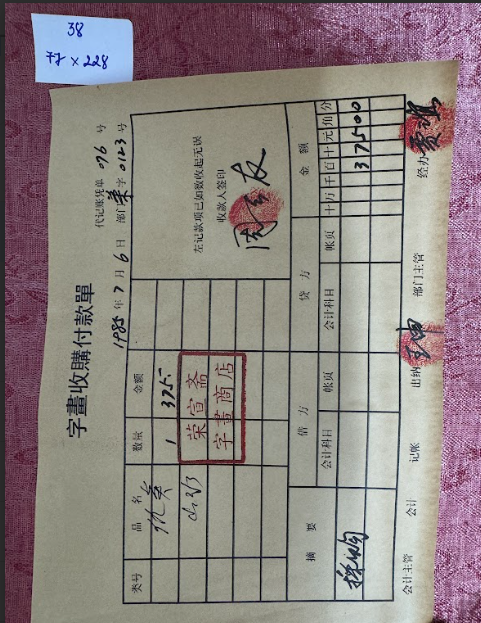 38
77 × 228
字畫收購付款單
代记账凭单 076 号
1985 年 7 月 6 日 部门 字 0123 号
类号 品名 数量 金额
仇英 1 375-
左记款项已如数收起无误
收款人签印
荣宣斋
字畫商店
摘要 借方 贷方 金额
会计科目 帐页 会计科目 帐页 十万千百十元角分
37500
会计主管 会计 记账 出纳 部门主管 经办